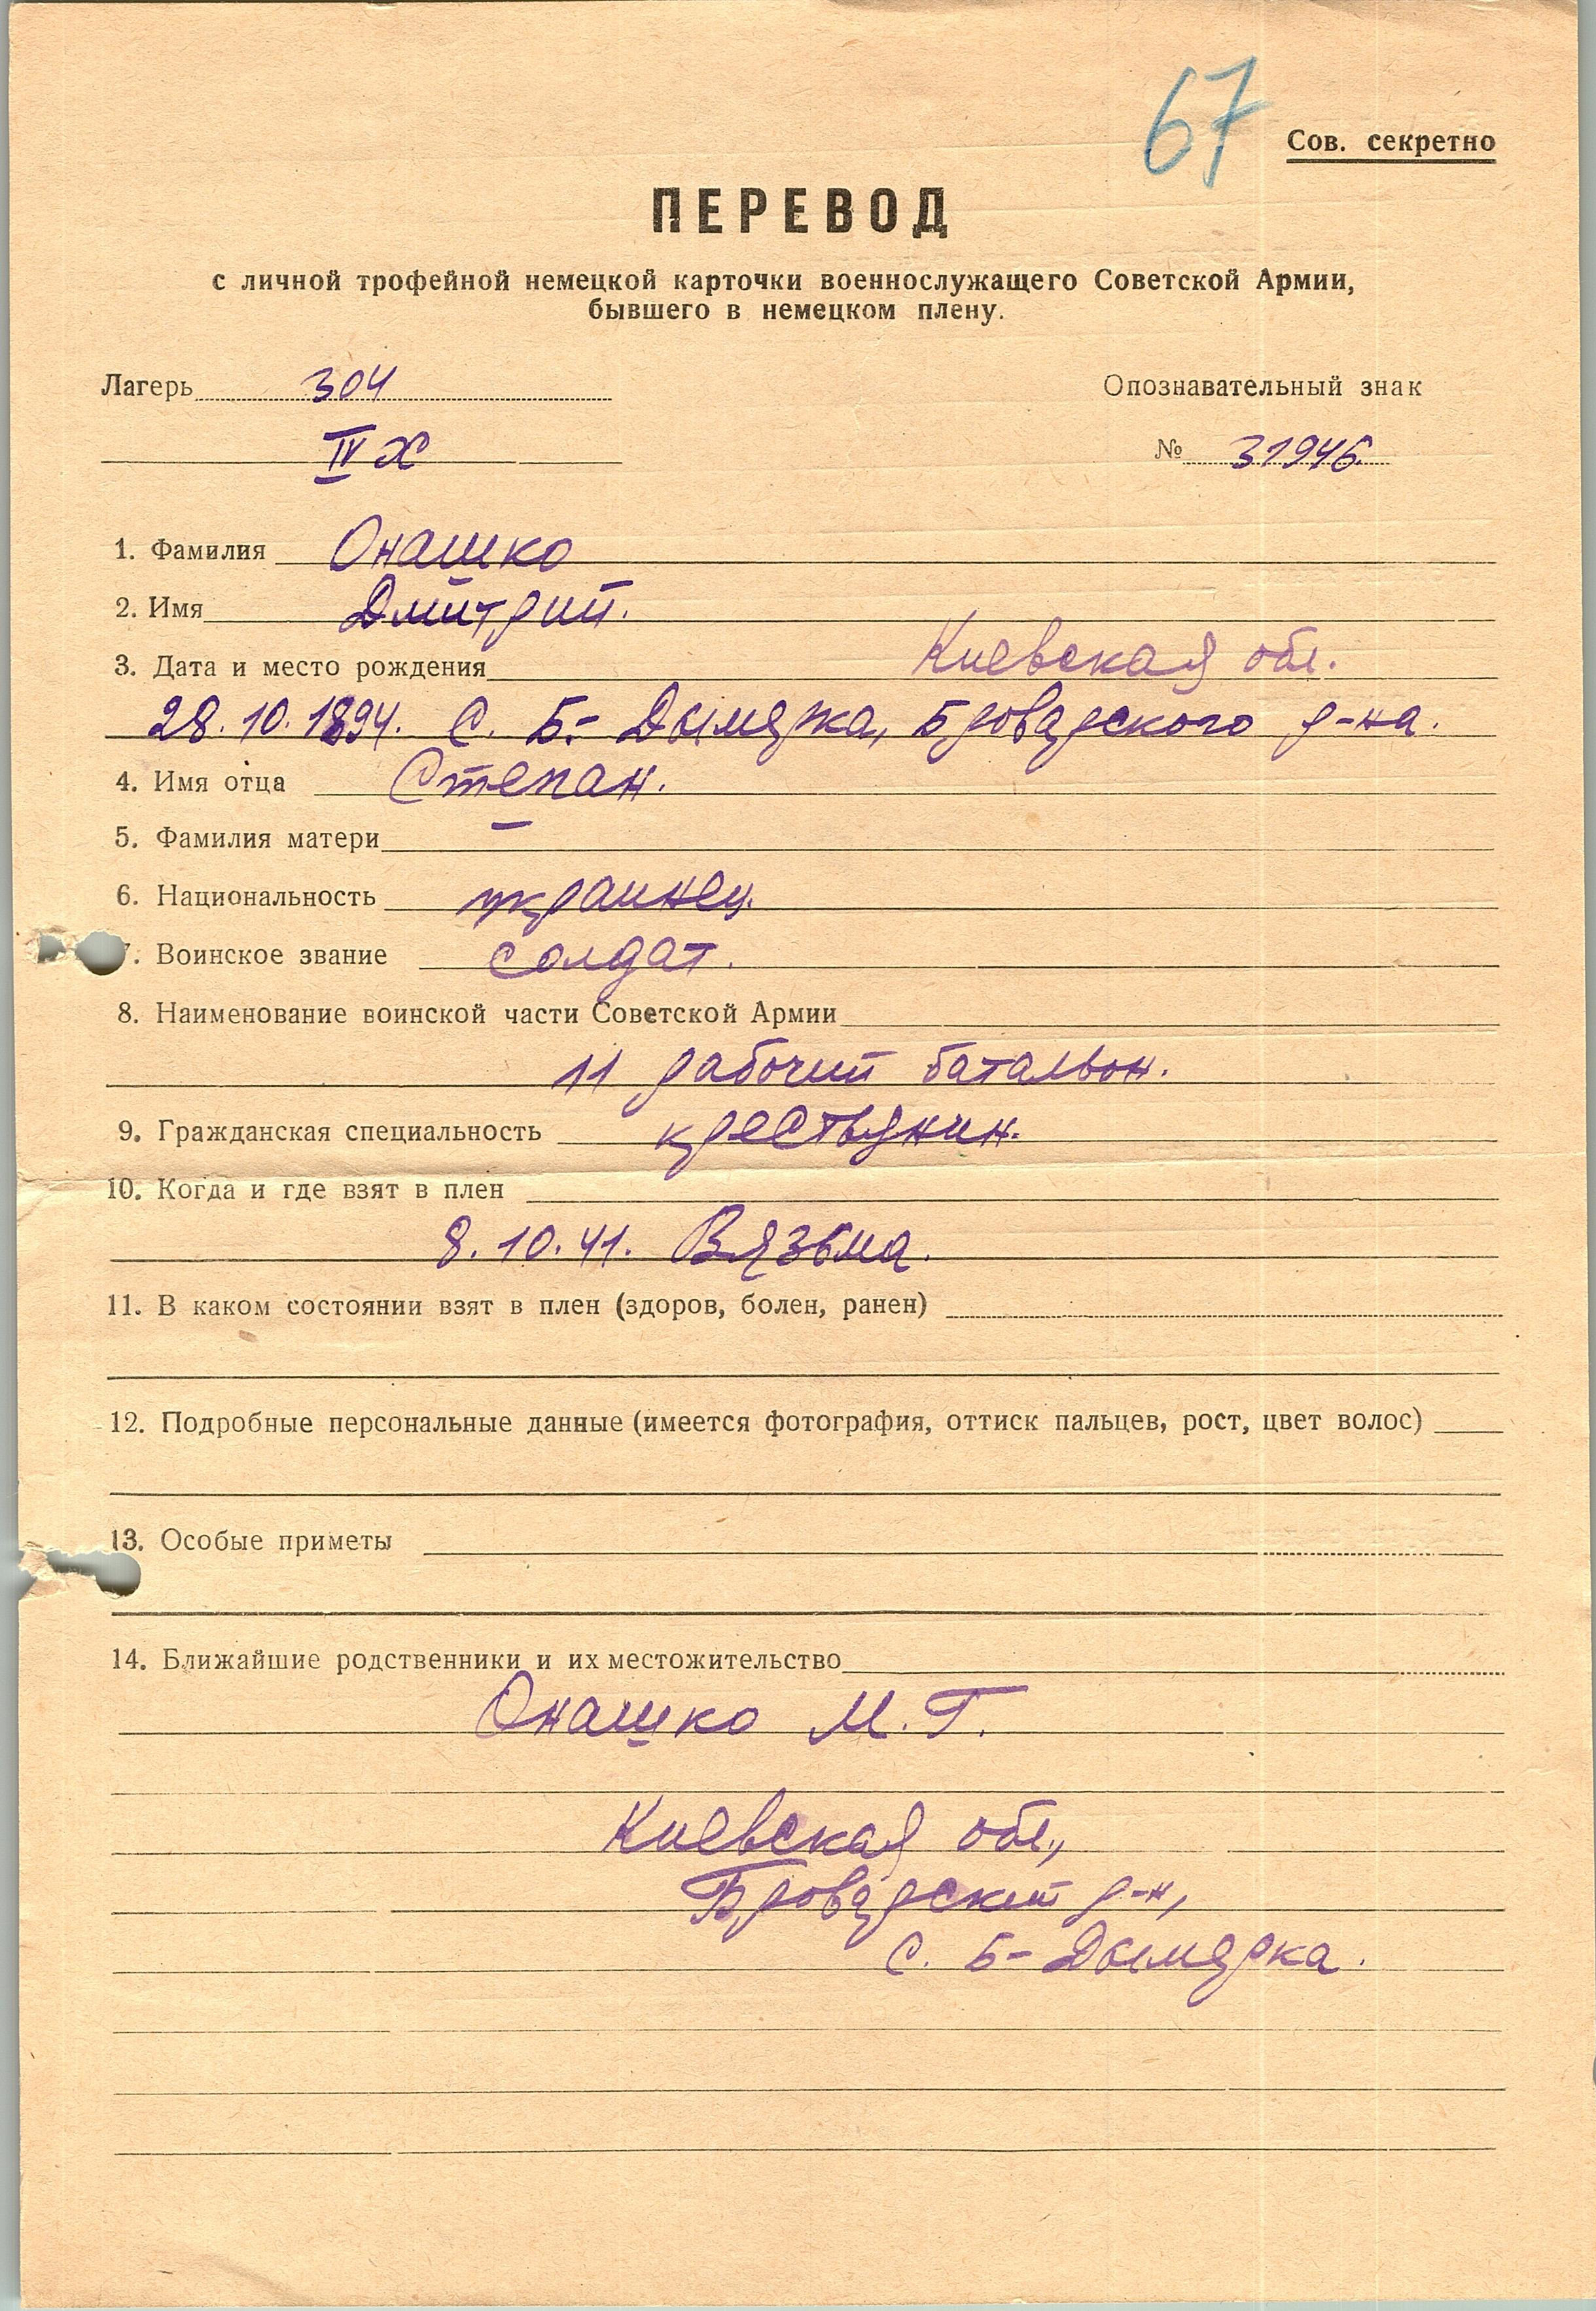 67
Сов. секретно
ПЕРЕВОД
с личной трофейной немецкой карточки военнослужащего Советской Армии,
бывшего в немецком плену.
Лагерь 304 Опознавательный знак
IV Х № 31946.
1. Фамилия Онашко
2. Имя Дмитрий.
3. Дата и место рождения Киевская обл.
28.10.1894. С. Б.- Дымярка, Броварского р-на.
4. Имя отца Степан.
5. Фамилия матери —
6. Национальность украинец.
7. Воинское звание солдат.
8. Наименование воинской части Советской Армии
11 рабочий батальон.
9. Гражданская специальность крестьянин.
10. Когда и где взят в плен
8.10.41. Вязьма.
11. В каком состоянии взят в плен (здоров, болен, ранен)
12. Подробные персональные данные (имеется фотография, оттиск пальцев, рост, цвет волос)
13. Особые приметы
14. Ближайшие родственники и их местожительство
Онашко М. Г.
Киевская обл.,
Броварский р-н,
С. Б- Дымярка.